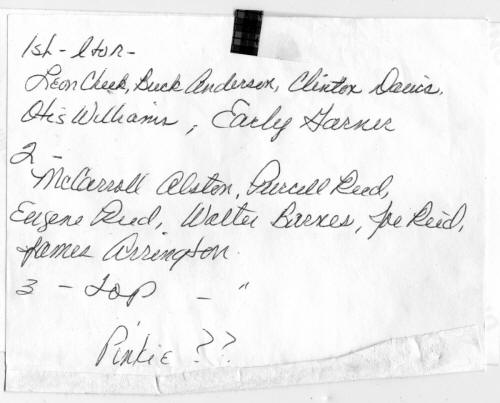 1st - l to r -
Leon Cheek, Buck Anderson, Clinton Davis,
Otis Williams, Early Garner
2 -
McCarroll Alston, Purcell Reid,
Eugene Reid, Walter Barnes, Joe Reid,
James Arrington.
3 - Top - "
Pinkie ??